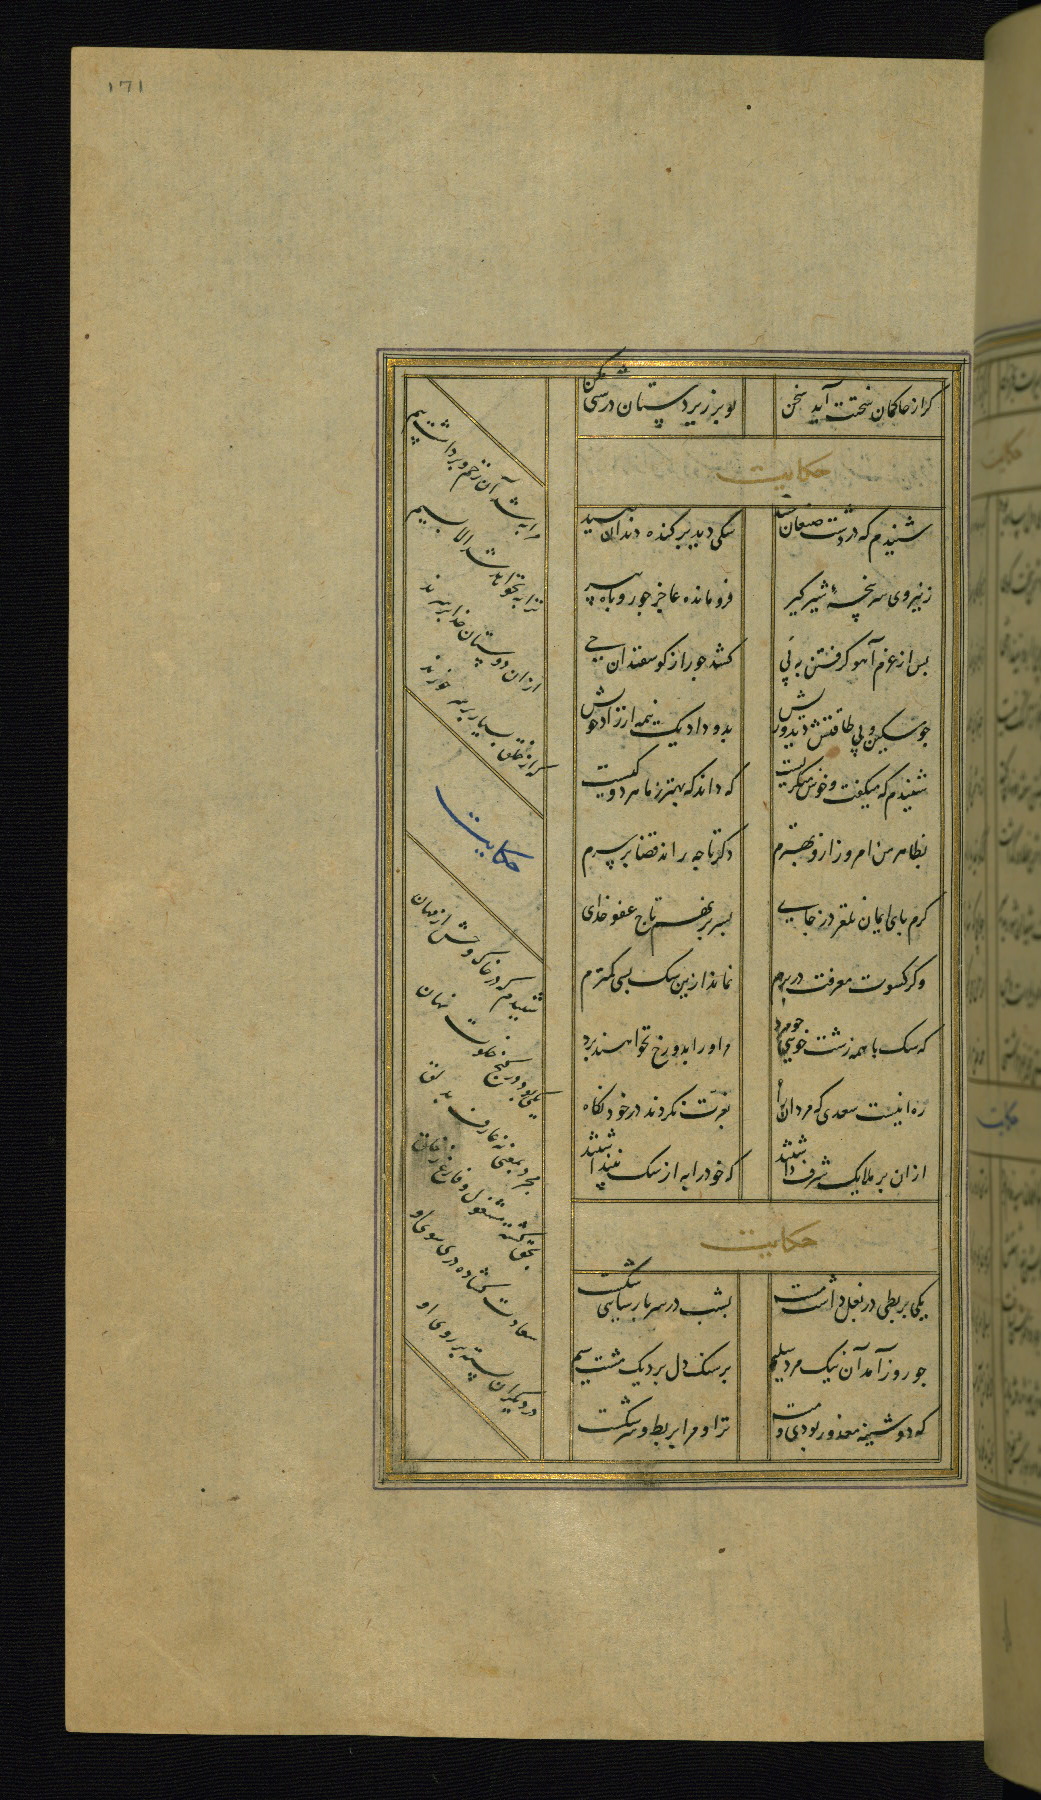 ١٧١
کر از حاکمان سختت آید سخن
تو بر زیر دستان درشتی مکن
حکایت
شنیدم که در دشت صنعان جنید
سکی دید بر کنده دندان صید
ز نیروی سر پنجهٔ شیر کیر
فرو مانده عاجز چو روباه پیر
پس از غرم آهو کرفتن به پی
لکد خوردی از کوسفندان حی
چو مسکین و بی طاقتش دید و ریش
بدو داد یک نیمه از زاد خویش
شنیدم که میکفت و خوش میکریست
که داند که بهتر ز ما هر دو کیست
بظاهر من امروز ازو بهترم
دکر تا چه راند قضا بر سرم
کرم پای ایمان نلغزد ز جای
بسر بر نهم تاج عفو خدای
و کر کسوت معرفت در برم
نماند ازین سک بسی کمترم
که سک با همه زشت خویی چو مرد
مر او را بدوزخ نخواهند برد
ره اینست سعدی که مردان راه
بعزت نکردند در خود نکاه
ازان بر ملایک شرف داشتند
که خود را به از سک نپنداشتند
حکایت
یکی بربطی در بغل داشت مست
بشب در سر پارسایی شکست
چو روز آمد آن نیک مرد سلیم
بر سنک دل برد یک مشت سیم
که دوشینه معذور بودی و مست
ترا و مرا بربط و سر شکست
مرا به شد آن زخم و برخاست بیم
ترا به نخواهد شد الا بسیم
ازان دوستان خدا بر سرند
که از خلق بسیار بر سر خورند
حکایت
شنیدم که در خاک وخش از مهان
یکی بود در کنج خلوت نهان
مجرد بمعنی نه عارف بدلق
بحق کشته مشغول و فارغ ز خلق
سعادت کشاده دری سوی او
در دیکران بسته بر روی او